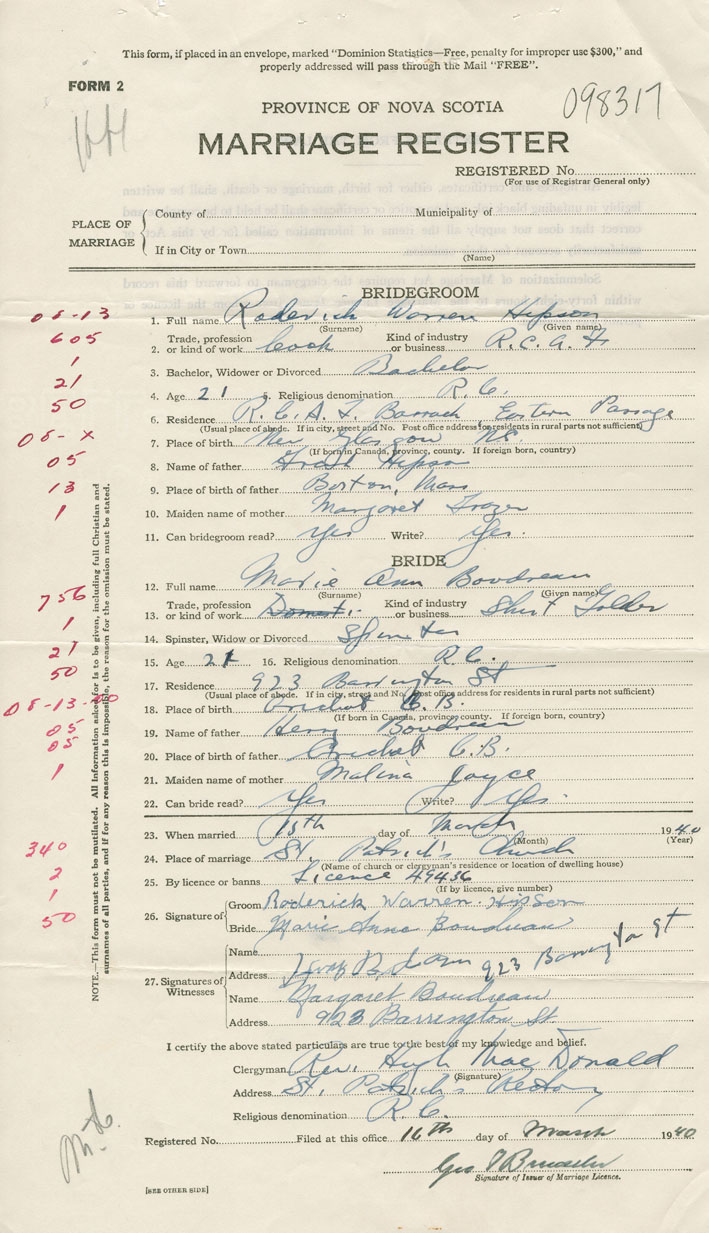 This form, if placed in an envelope, marked "Dominion Statistics—Free, penalty for improper use $300," and
properly addressed will pass through the Mail "FREE".
FORM 2
PROVINCE OF NOVA SCOTIA
098317
MARRIAGE REGISTER
REGISTERED No.
(For use of Registrar General only)
PLACE OF MARRIAGE
County of
Municipality of
If in City or Town
(Name)
BRIDEGROOM
08-13
1. Full name Roderick Warren Hipson
(Surname) (Given name)
605
2. Trade, profession or kind of work Cook Kind of industry or business R.C.A.F
1
3. Bachelor, Widower or Divorced Bachelor
21
4. Age 21 5. Religious denomination R.C.
50
6. Residence R.C.A.F. Barrack, Eastern Passage
(Usual place of abode. If in city, street and No. Post office address for residents in rural parts not sufficient)
08-X
7. Place of birth New Glasgow N.S.
(If born in Canada, province, county. If foreign born, country)
05
8. Name of father Hipson
13
9. Place of birth of father Boston, Mass
1
10. Maiden name of mother Margaret Frazer
11. Can bridegroom read? Yes Write? Yes.
BRIDE
12. Full name Marie Ann Boudreau
(Surname) (Given name)
756
13. Trade, profession or kind of work Domest. Kind of industry or business Shirt Folder
1
14. Spinster, Widow or Divorced Spinster
21
15. Age 21 16. Religious denomination R.C.
50
17. Residence 923 Barrington St
(Usual place of abode. If in city, street and No. Post office address for residents in rural parts not sufficient)
08-13-50
18. Place of birth Arichat C.B.
(If born in Canada, province, county. If foreign born, country)
05
19. Name of father Henry Boudreau
05
20. Place of birth of father Arichat C.B.
1
21. Maiden name of mother Malina Joyce
22. Can bride read? Yes Write? Yes.
23. When married 15th day of March 1940
(Month) (Year)
340
24. Place of marriage St. Patrick's Church
(Name of church or clergyman's residence or location of dwelling house)
2
25. By licence or banns Licence 49436
(If by licence, give number)
1
26. Signature of
Groom Roderick Warren Hipson
50
Bride Marie Anne Boudreau
27. Signatures of Witnesses
Name
Address 923 Barrington St
Name Margaret Boudreau
Address 923 Barrington St.
I certify the above stated particulars are true to the best of my knowledge and belief.
Clergyman Rev. Hugh MacDonald
(Signature)
Address St. Patrick's Rectory
Religious denomination R.C.
Registered No. Filed at this office 16th day of March 1940
Signature of Issuer of Marriage Licence.
[SEE OTHER SIDE]
NOTE.—This form must not be mutilated. All Information asked for is to be given, including full Christian and
surnames of all parties, and if for any reason this is impossible, the reason for the omission must be stated.